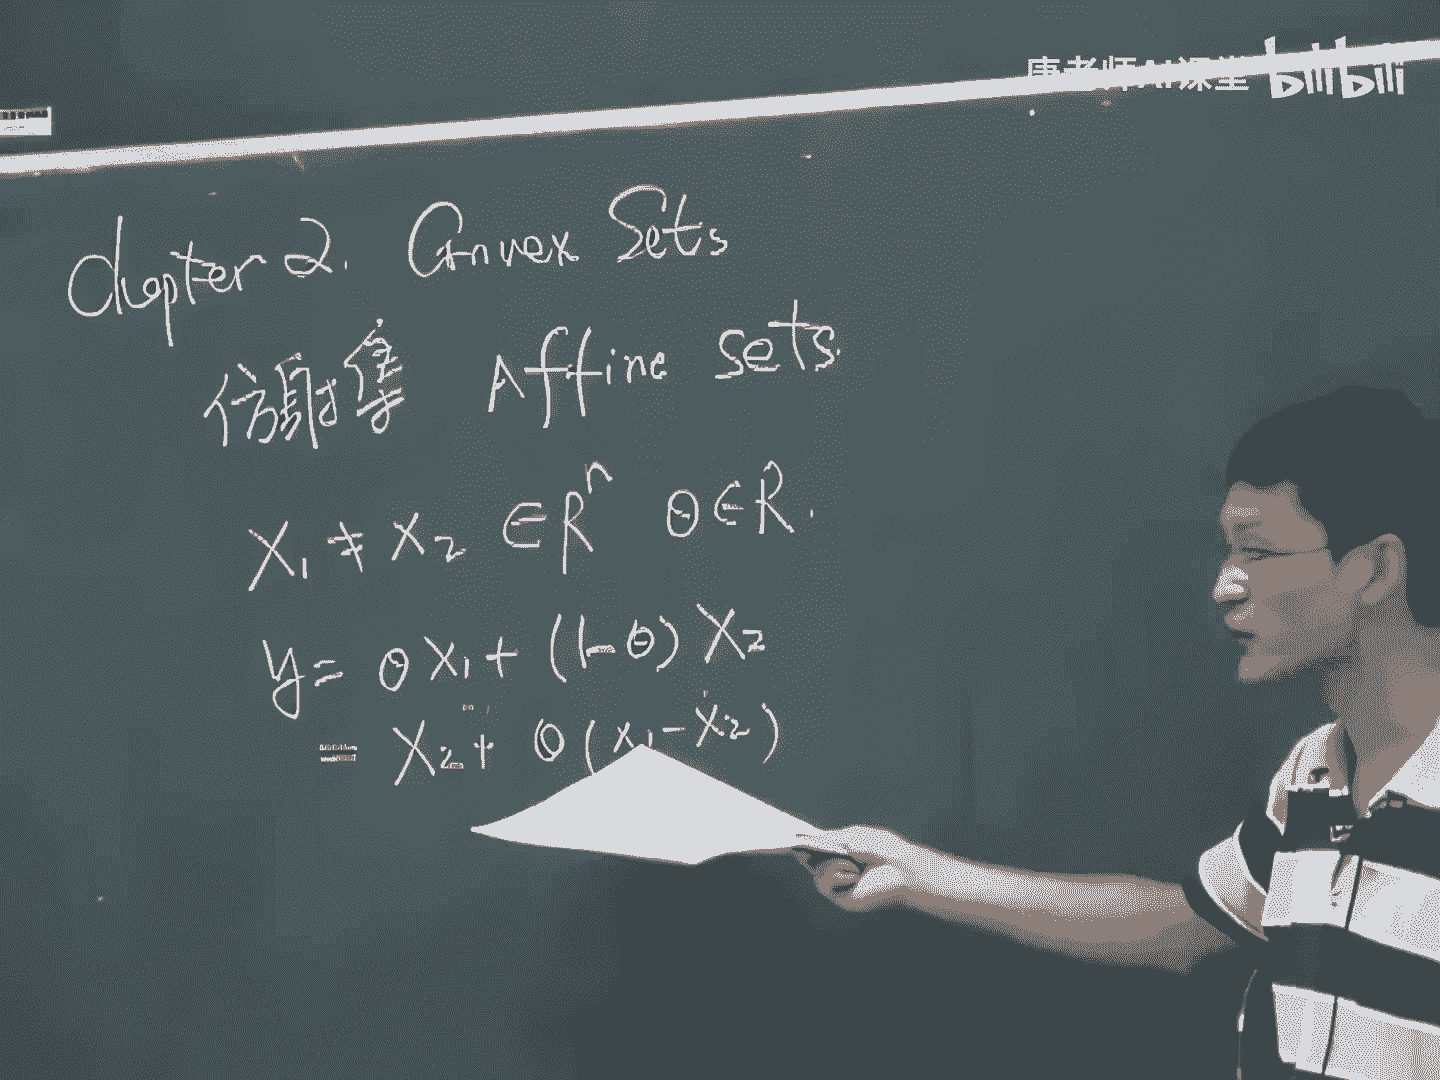 唐老师AI课堂 bilibili
Chapter 2. Convex Sets
仿射集 Affine sets.
X₁ ≠ X₂ ∈ Rⁿ θ ∈ R.
y = θX₁ + (1-θ) X₂
= X₂ + θ(X₁ - X₂)